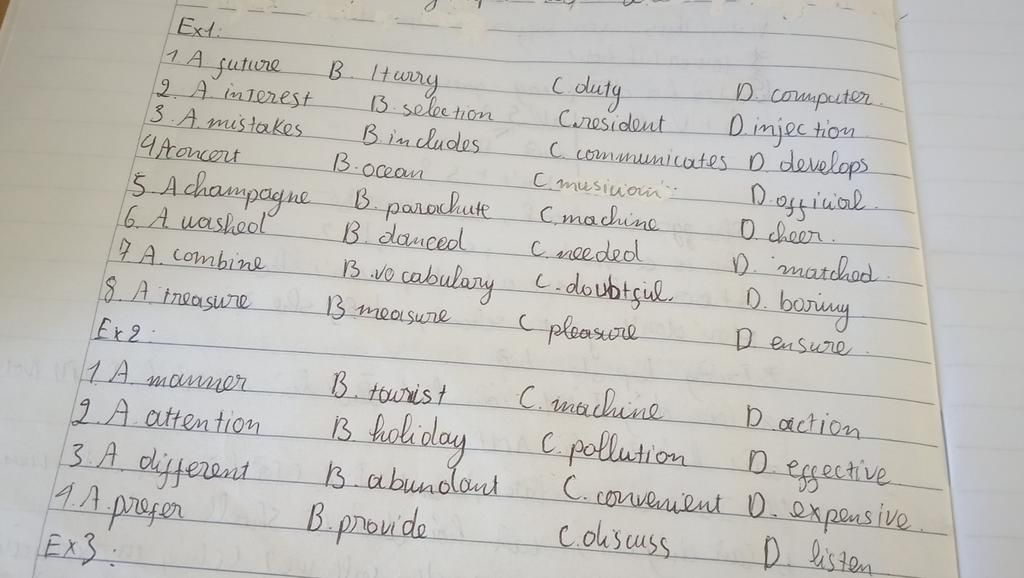 Ex1:
1. A future B. Hurry C. duty D. computer.
2. A. interest B. selection C. resident D. injection
3. A. mistakes B. includes C. communicates D. develops
4 A concert B. ocean C. musician D. official.
5. A champagne B. parachute C. machine D. cheer.
6. A washed B. danced C. needed D. matched
7 A. combine B. vocabulary C. doubtful. D. boring
8. A. treasure B measure C pleasure D ensure.
Ex2:
1. A. manner B. tourist C. machine D. action
2. A. attention B. holiday C. pollution D. effective
3. A. different B. abundant C. convenient D. expensive.
4. A. prefer B. provide C. discuss D. listen
Ex3: